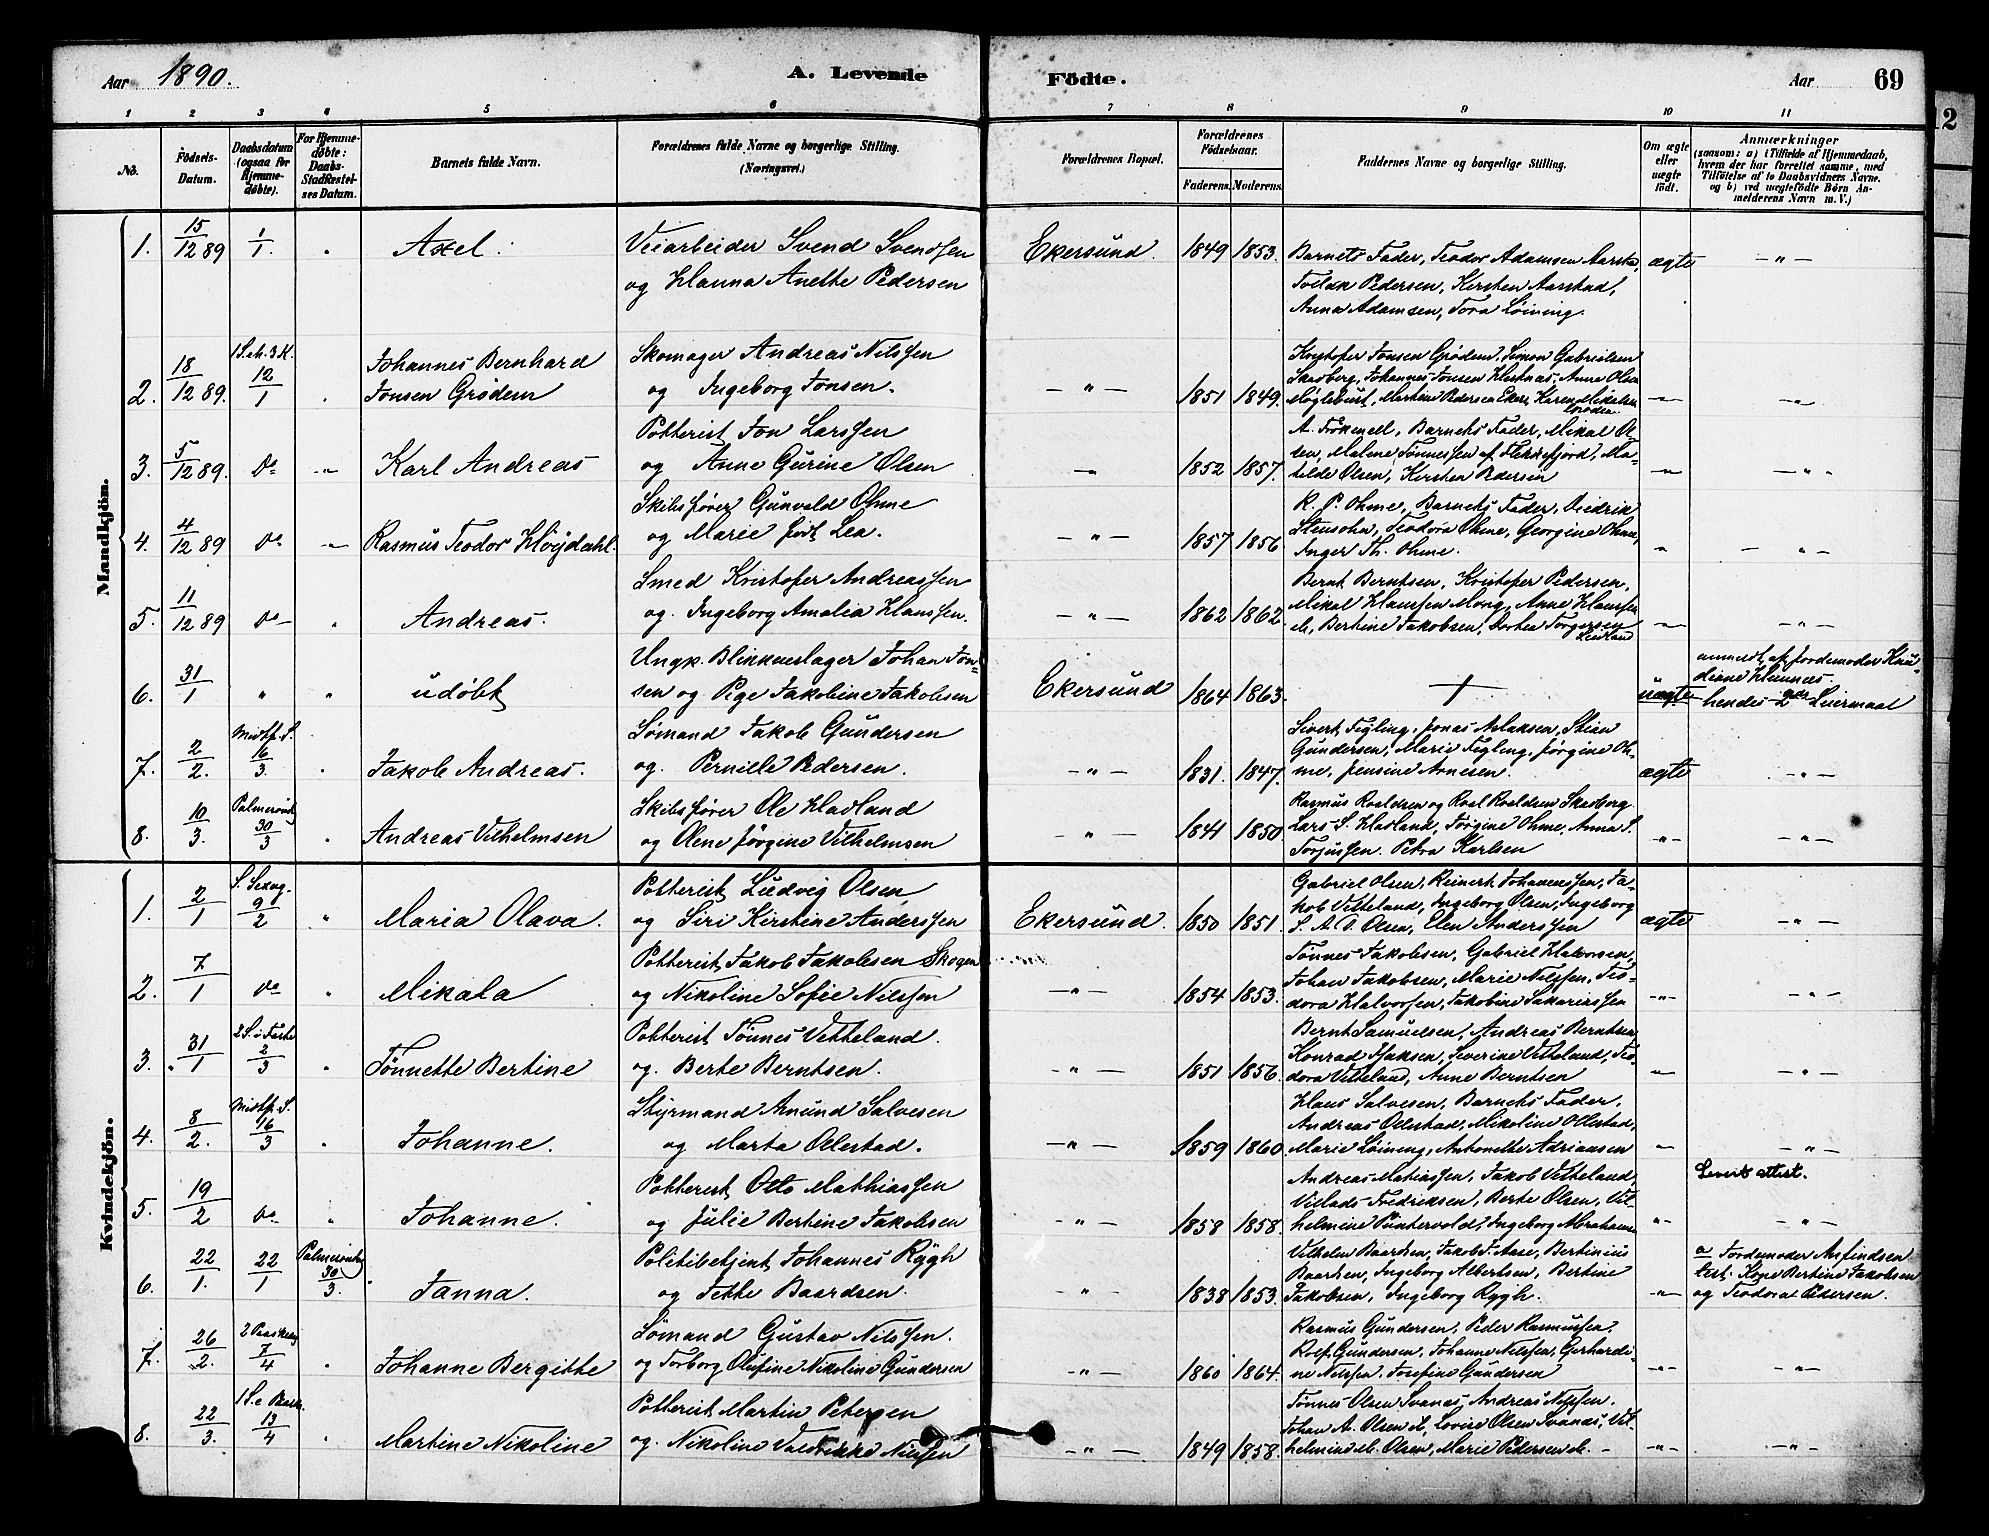 Aar 1890.
A. Levende Födte.
Aar 69
1 2 3 4 5 6 7 8 9 10 11
No.
Födsels-Datum.
Daabsdatum (ogsaa for Hjemmedöbte).
For Hjemmedöbte: Daabs-Stadfæstelses Datum.
Barnets fulde Navn.
Forældrenes fulde Navne og borgerlige Stilling. (Næringsvei.)
Forældrenes Bopæl.
Forældrenes Födselsaar.
Faderens. Moderens.
Faddernes Navne og borgerlige Stilling.
Om ægte eller uægte födt.
Anmærkninger
(saasom: a) i Tilfælde af Hjemmedaab, hvem der har forrettet samme, med Tilföielse af to Daabsvidners Navne. og b) ved uægtefödte Börn Anmelderens Navn m. V.)
Mandkjön.
1. 15/12 89 1/1 " Axel. Veiarbeider Svend Svendsen
og Hanna Anette Pedersen
Ekersund. 1849 1853. Barnets Fader, Teodor Adamsen Aarstad,
Tollak Pedersen, Kirsten Aarstad,
Anna Adamsen, Tora Löining.
ægte —"—
2. 18/12 89. 1 S. eh. 3 K. 12/1 " Johannes Bernhard
Jonsen Grødem
Skomager Andreas Nilssen
og Ingeborg Jonsen.
—"— 1851 1849. Kristofer Jonsen Grødem, Simon Gabrielsen
Skadberg, Johannes Jonsen Hestnes, Anne Olsen
Møglebust, Martine Pedersen Eker, Karen Mikalsen
Grødem.
3. 5/12 89. do —"— Karl Andreas
Potterist Jon Larssen
og Anne Gurine Olsen
1852 1857. A. Frøkenell, Barnets Fader, Mikal Ol-
sen, Malene Tønnessen af Flekkefjord, Ma-
tilde Olsen, Kirsten Pedersen
4. 4/12 89 do — Rasmus Teodor Høydahl.
Skibsfører Gunvald Ohme
og Marie født Lea.
—"— 1857 1856. R. P. Ohme, Barnets Fader, Diedrik
Stensohn, Teodora Ohme, Georgine Ohme,
Inger Th. Ohme.
5. 11/12 89 do— " Andreas.
Smed Kristofer Andreassen
og Ingeborg Amalia Hanssen.
—"— 1862 1862. Bernt Berntsen, Kristofer Pedersen,
Mikal Hanssen Mong, Anne Hanssen
Bertine Jakobsen, Dorthea Torgersen
6. 31/1 " " udøbt
Ungk. Blikkenslager Johan Jon-
sen og Pige Jakobine Jakobsen
Ekersund 1864 1863. + uægte
anmeldt af Jordemoder Knu-
diane Hamnes.
hendes 2det Leiermaal
7. 2/2. Midtf. S. 16/3 " Jakob Andreas.
Sømand Jakob Gundersen
og Pernille Pedersen.
—"— 1831. 1847. Sivert Tegling, Jonas Aslaksen, Stian
Gundersen, Marie Tegling, Jørgine Oh-
me, Jensine Arnesen.
ægte —"—
8. 10/3. Palmesøndag 30/3 " Andreas Vilhelmsen
Skibsfører Ole Hadland
og Olene Jørgine Vilhelmsen
—"— 1841 1850. Rasmus Roaldsen og Roal Roaldsen Skadberg
Lars S. Hadland, Jørgine Ohme, Anna S.
Torjussen. Petra Karlsen
Kvindekjön.
1. 2/1 S. Sexag. 9/2 " Maria Olava.
Potterist Ludvig Olsen,
og Siri Kirstine Anderssen
Ekersund. 1850 1851. Gabriel Olsen, Reinert Johannessen, Ja-
kob Vetteland, Ingeborg Olsen, Ingeborg
S. A. P. Olsen, Elen Anderssen
ægte —"—
2. 7/1 do " Mikala
Potterist Jakob Jakobsen Skogen
og Nikoline Sofie Nilssen
—"— 1854 1853. Tønnes Jakobsen, Gabriel Halvorsen,
Johan Jakobsen, Marie Nilssen, Teo-
dora Halvorsen, Jakobine Sakariassen
3. 31/1 2 S. i Faste 2/3 " Tønnette Bertine
Potterist Tønnes Vetteland.
og Berte Berntsen.
—"— 1851 1856. Bernt Samuelsen, Andreas Berntsen
Konrad Isaksen, Severine Vetteland, Teo-
dora Vetteland, Anne Berntsen
4. 8/2. Midtf. S. 16/3 " Johanne.
Styrmand Amund Salvesen
og Marta Ollestad.
—"— 1859 1860. Hans Salvesen, Barnets Fader,
Andreas Ollestad, Mikoline Ollestad,
Marie Löining, Antonette Adriansen
5. 19/2 do " Johanne.
Potterist Otto Mathiassen
og Julie Bertine Jakobsen
—"— 1858 1858. Andreas Matiassen, Jakob Vetteland,
Villads Fredriksen, Berte Olsen, Vil-
helmine Puntervold, Ingeborg Abrahams
Levert attest.
6. 22/1. 22/1 Palmesøndag 30/3. Janna.
Politibetjent Johannes Rygh
og Jette Baardsen.
1838 1853. Vilhelm Baardsen, Jakob F. Aase, Bertinius
Baardsen, Ingeborg Albertsen, Bertine
Jakobsen, Ingeborg Rygh.
a Jordemoder Anfindsen
test: Kone Bertine Jakobsen
og Teodora Pedersen.
7. 26/2. 2 Paaskedag 7/4 " Johanne Bergitte
Sømand Gustav Nilssen.
og Torborg Olufine Nikoline Gundersen
—"— 1860 1864. Rasmus Gundersen, Peder Rasmussen,
Rolf Gundersen, Johanne Nilssen, Gerhardi-
ne Nilssen, Josefine Gundersen
8. 22/3. 1 S. e. Paask. 13/4 " Martine Nikoline
Potterist Martin Petersen
og Nikoline Nilssen
—"— 1849 1858. Tønnes Olsen Svanes, Andreas Nilssen.
Johan A. Olsen, Lovise Olsen Svanes, Vil-
helmine Olsen, Marie Pedersen
12